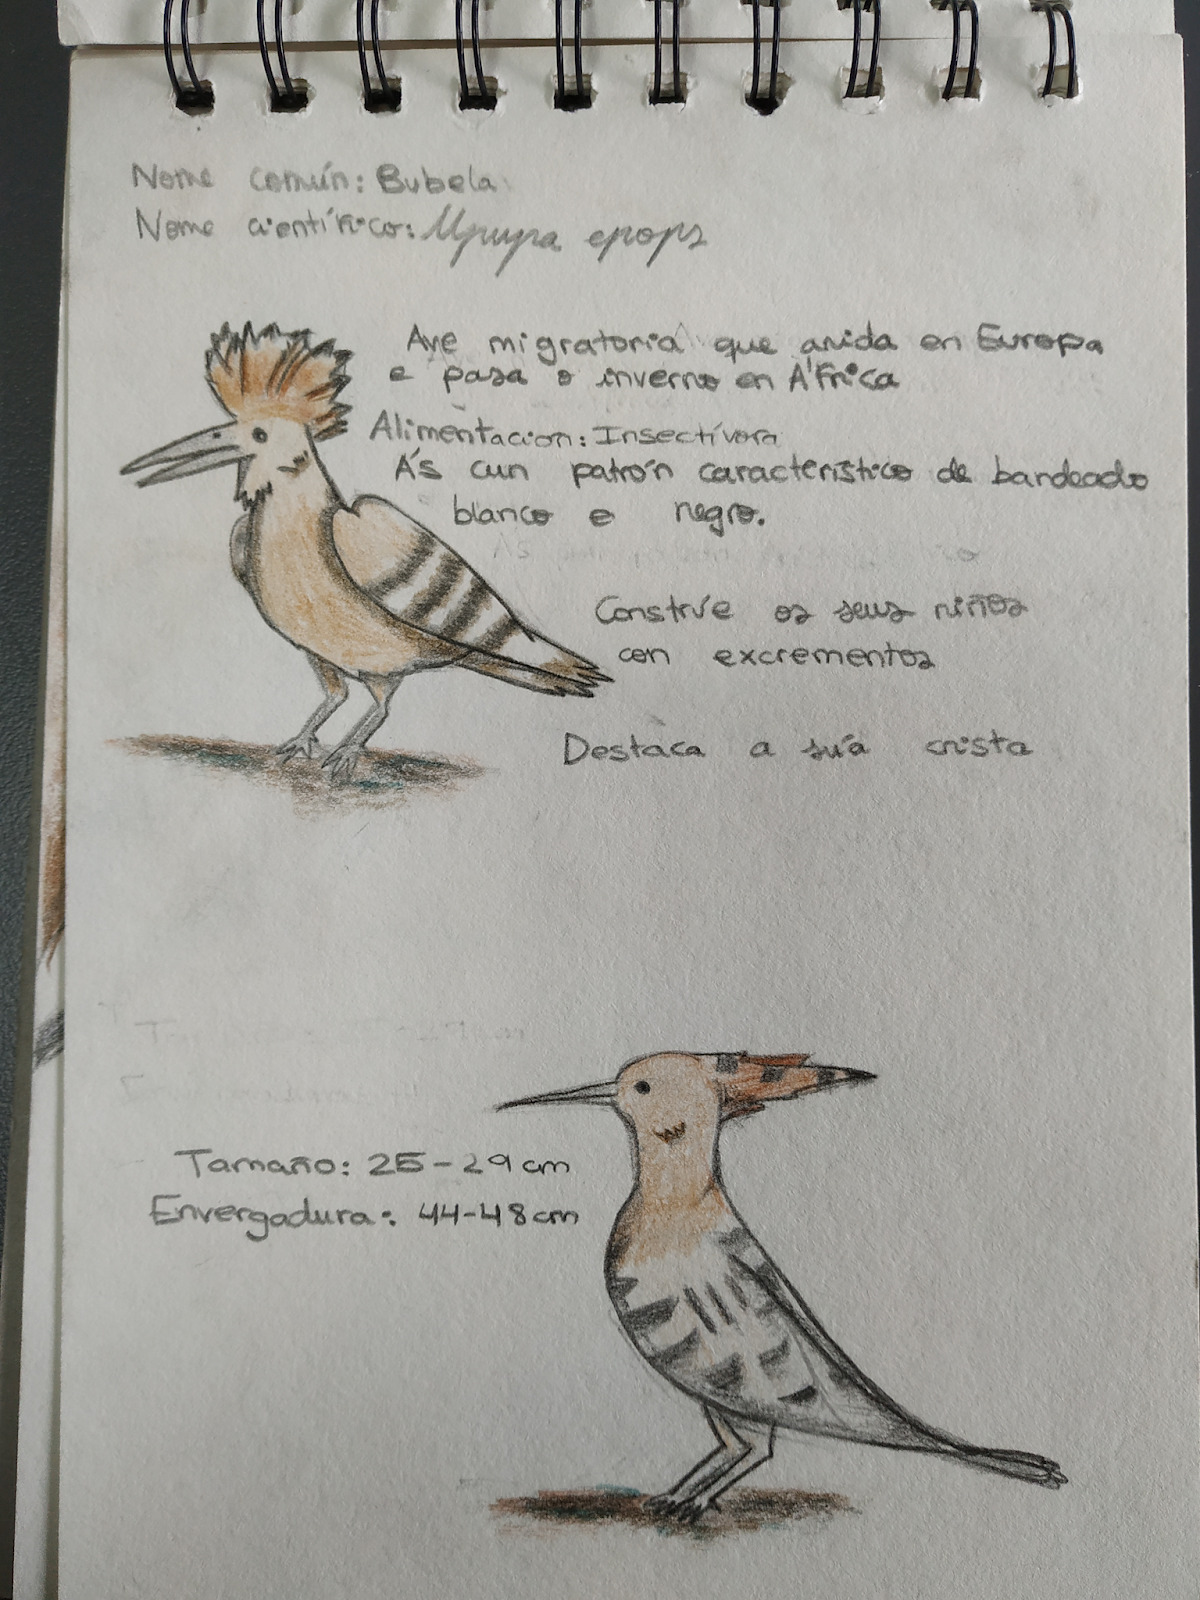 Nome común: Bubela
Nome científico: Upupa epops
Ave migratoria que anida en Europa
e pasa o inverno en África
Alimentacion: Insectívora
Ás cun patrón característico de bandeado
blanco e negro.
Constrúe os seus niños
con excrementos
Destaca a súa crista
Tamaño: 25-29cm
Envergadura: 44-48cm